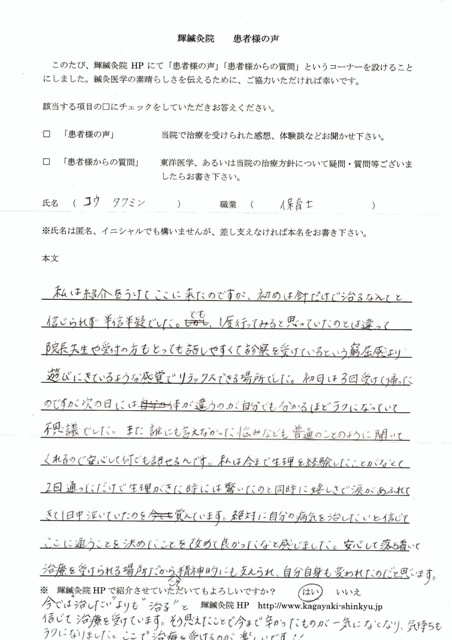 輝鍼灸院　　患者様の声
このたび、輝鍼灸院 HP にて「患者様の声」「患者様からの質問」というコーナーを設けること
にしました。鍼灸医学の素晴らしさを伝えるために、ご協力いただければ幸いです。
該当する項目の□にチェックをしていただきお答えください。
□　「患者様の声」　　当院で治療を受けられた感想、体験談などお聞かせ下さい。
□　「患者様からの質問」　　東洋医学、あるいは当院の治療方針について疑問・質問等ございま
したらお書き下さい。
氏名　（　コウ　タクミン　）　　職業　（　保育士　）
※氏名は匿名、イニシャルでも構いませんが、差し支えなければ本名をお書き下さい。
本文
私は紹介をうけてここに来たのですが、初めは針だけで治るなんてと
信じられず半信半疑でした。でも、1度行ってみると思っていたのとは違って
院長先生や受付の方もとっても話しやすくて診察を受けているという窮屈感より
遊びにきているような感覚でリラックスできる場所でした。初日は3回受けて帰った
のですが次の日には体が違うのが自分でも分かるほどラクになっていて
不思議でした。また誰にも言えなかった悩みなども普通のことのように聞いて
くれるので安心して何でも話せるんです。私は今まで生理を経験したことがなくて
2回通っただけで生理がきた時には驚いたのと同時に嬉しさで涙があふれて
きて1日中泣いていたのを覚えています。絶対に自分の病気を治したいと信じて
ここに通うことを決めたことを改めて良かったなと感じました。安心して落ち着いて
治療を受けられる場所だから精神的にも支えられ、自分自身も変われたのだと思います。
※輝鍼灸院 HP で紹介させていただいてもよろしいですか？　（はい）　いいえ
輝鍼灸院 HP　http://www.kagayaki-shinkyu.jp/
今では治したい"よりも"治る"と
信じて治療を受けています。そう思えたことで今まで辛かったものが一気になくなり、気持ちも
ラクになりました。ここで治療を受けるのが楽しいです!!